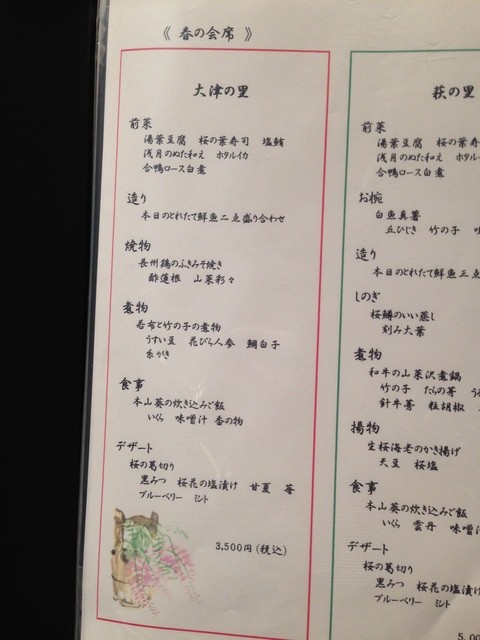 《 春の会席 》
大津の里
前菜
湯葉豆腐 桜の葉寿司 塩鮪
浅月のぬた和え ホタルイカ
合鴨ロース白煮
造り
本日のとれたて鮮魚二点盛り合わせ
焼物
長州鶏のふきみそ焼き
酢蓮根 山菜彩々
煮物
若布と竹の子の煮物
うすい豆 花びら人参 鯛白子
糸がき
食事
本山葵の炊き込みご飯
いくら 味噌汁 香の物
デザート
桜の葛切り
黒みつ 桜花の塩漬け 甘夏 苺
ブルーベリー ミント
3,500円(税込)
萩の里
前菜
湯葉豆腐 桜の葉寿
浅月のぬた和え ホタル
合鴨ロース白煮
お椀
白魚真薯
丘ひじき 竹の子
造り
本日のとれたて鮮魚三点
しのぎ
桜鱒のいい蒸し
刻み大葉
煮物
和牛の山菜沢煮鍋
竹の子 たらの芽
針牛蒡 粒胡椒
揚物
生桜海老のかき揚げ
天豆 桜塩
食事
本山葵の炊き込みご飯
いくら 雲丹 味噌汁
デザート
桜の葛切り
黒みつ 桜花の塩漬け
ブルーベリー ミント
5,00